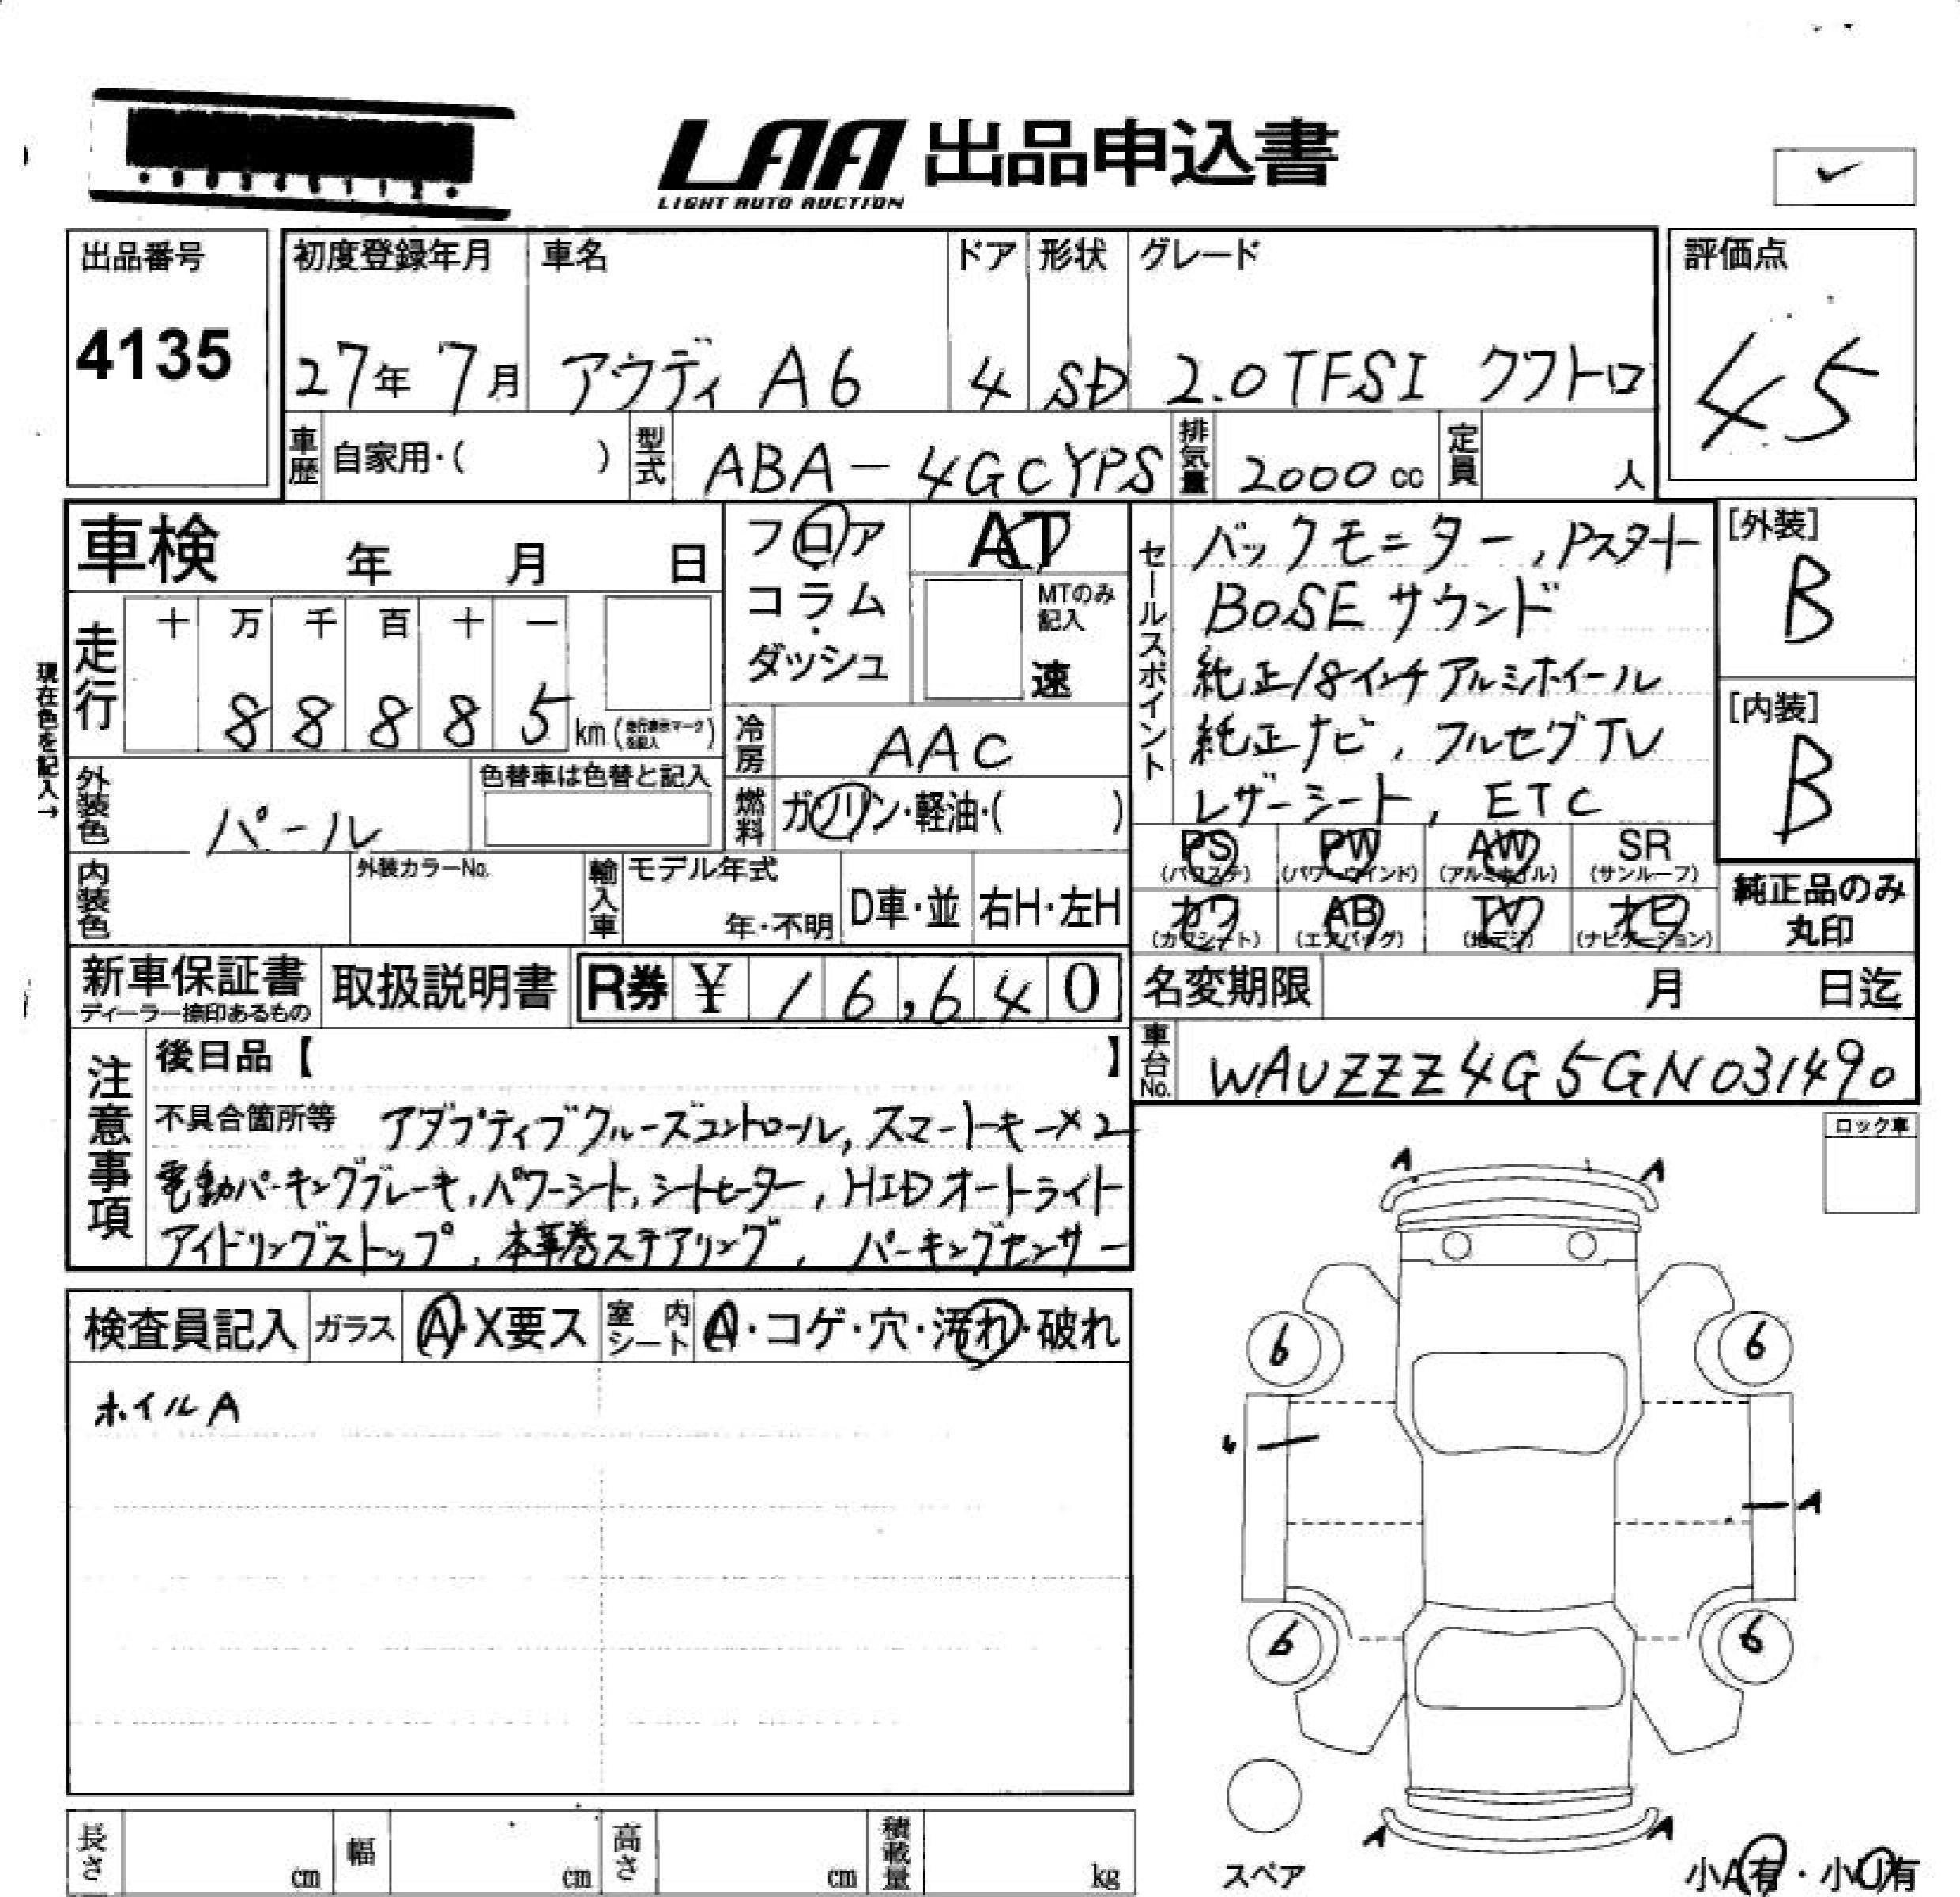 LAA 出品申込書
LIGHT AUTO AUCTION
出品番号
4135
初度登録年月 車名 ドア 形状 グレード
27年 7月 アウディ A6 4 SD 2.0TFSI クワトロ
評価点
45
車歴 自家用・( ) 型式 ABA-4GCYPS 排気量 2000cc 定員 人
車検 年 月 日
フロア
コラム
・
ダッシュ
AT
MTのみ
記入
速
走行 十 万 千 百 十 一
8 8 8 8 5 km(走行表示マークを記入)
現在色を記入→
外装色 パール 色替車は色替と記入
冷房 AAC
燃料 ガソリン・軽油・( )
内装色 外装カラーNo. 輸入車 モデル年式 年・不明 D車・並 右H・左H
セールスポイント
バックモニター, Pスタート
BOSEサウンド
純正18インチアルミホイール
純正ナビ, フルセグTV
レザーシート, ETC
[外装]
B
[内装]
B
PS PW AW SR
(パワステ) (パワーウインド) (アルミホイル) (サンルーフ)
カワ AB TV ナビ
(カワシート) (エアバッグ) (地デジ) (ナビゲーション)
純正品のみ
丸印
新車保証書 取扱説明書 R券 ¥ 16,640
ディーラー捺印あるもの
名変期限 月 日迄
車台No. WAUZZZ4G5GN031490
注意事項
後日品【 】
不具合箇所等 アダプティブクルーズコントロール, スマートキー×2
電動パーキングブレーキ, パワーシート, シートヒーター, HIDオートライト
アイドリングストップ, 本革巻ステアリング, パーキングセンサー
ロック車
検査員記入 ガラス A・X要ス 室内シート A・コゲ・穴・汚れ・破れ
ホイルA
A A
6 6
A
6 6
A A
スペア
小A有・小U有
長さ cm 幅 cm 高さ cm 積載量 kg